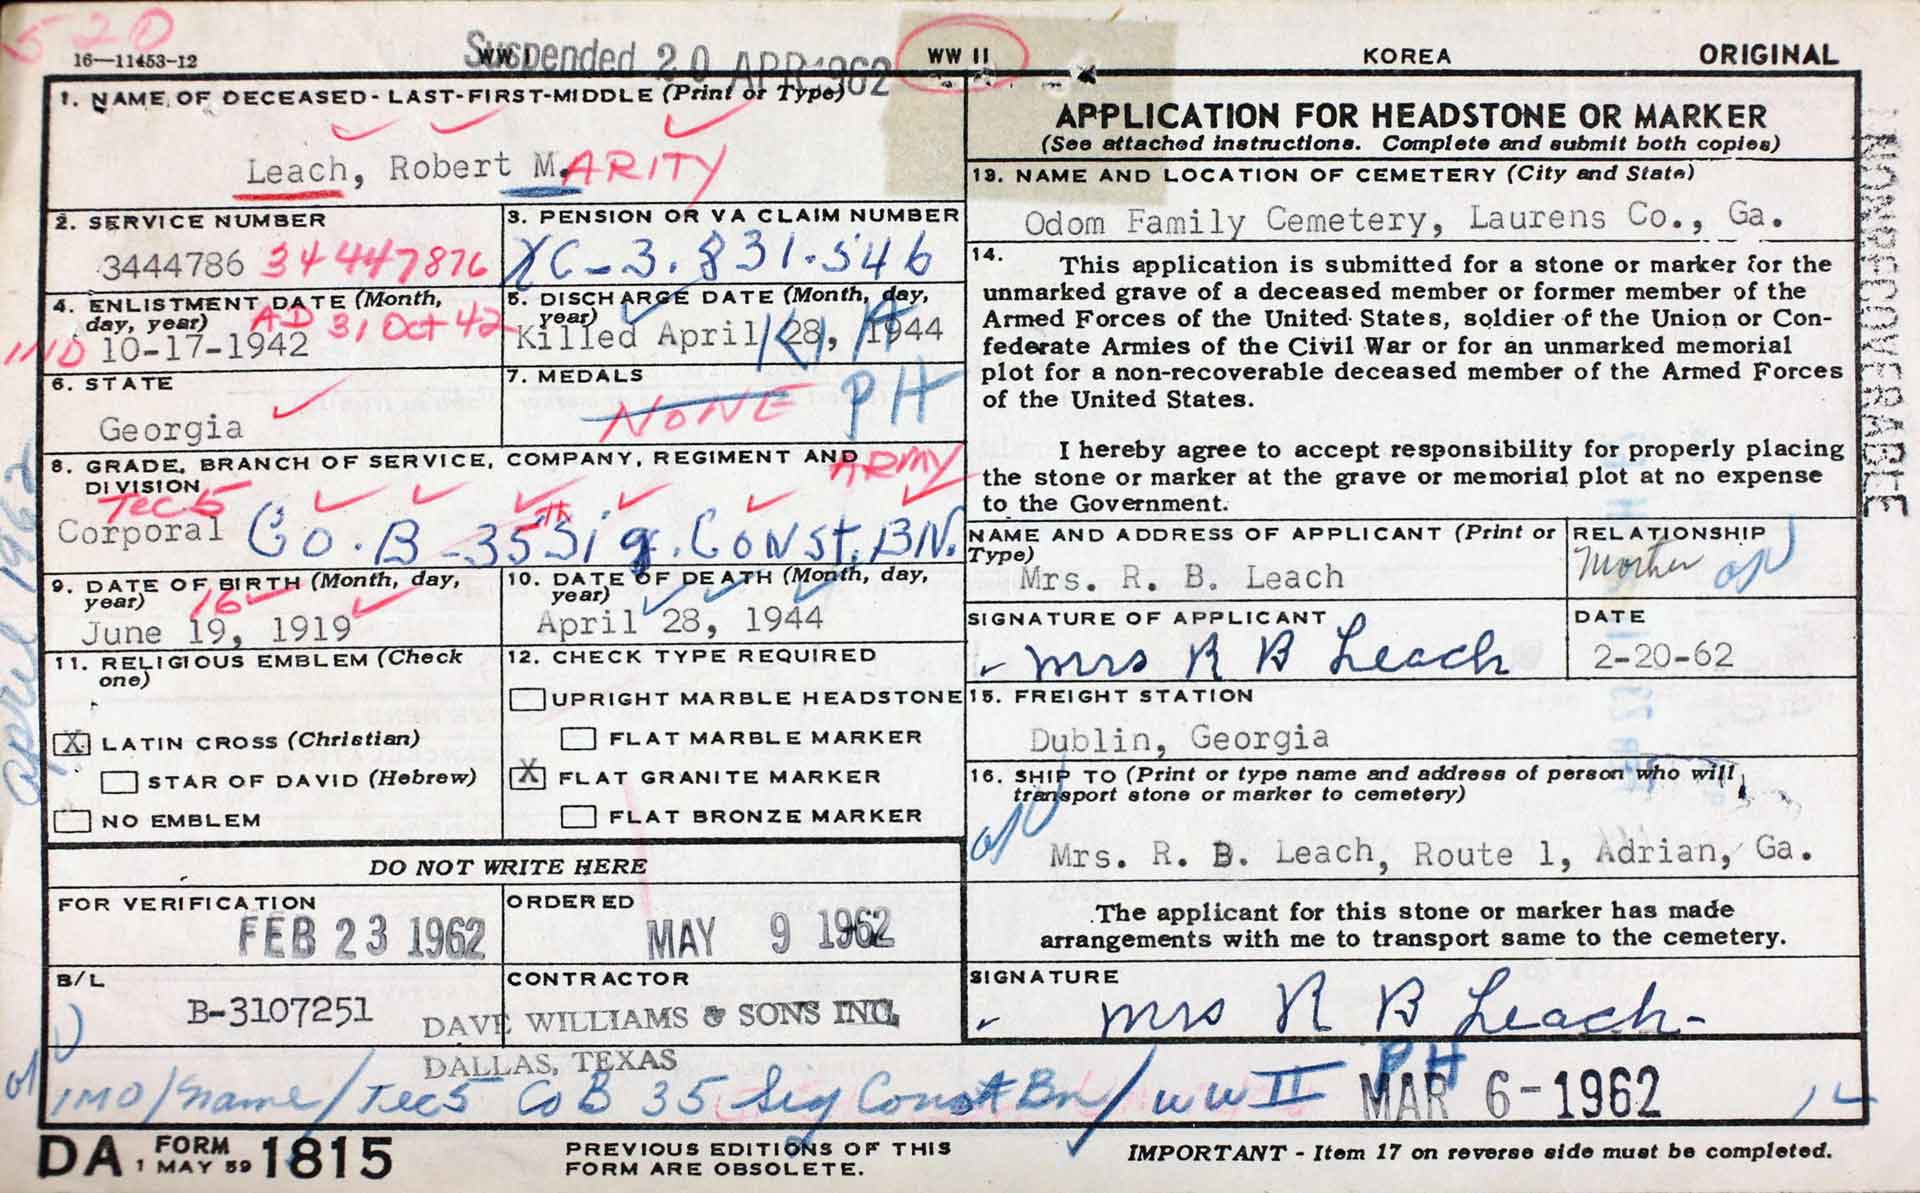 520
16—11453-12
Suspended 20 APR 1962
WW I
WW II
KOREA
ORIGINAL
1. NAME OF DECEASED - LAST-FIRST-MIDDLE (Print or Type)
Leach, Robert M. ARITY
2. SERVICE NUMBER
3444786 34 447876
3. PENSION OR VA CLAIM NUMBER
XC-3.831.546
4. ENLISTMENT DATE (Month,
day, year) AD 31 Oct 42
IND 10-17-1942
5. DISCHARGE DATE (Month, day,
year)
Killed April 28, 1944 KIA
6. STATE
Georgia
7. MEDALS
NONE PH
8. GRADE, BRANCH OF SERVICE, COMPANY, REGIMENT AND
DIVISION ARMY
Tec 5
Corporal Co. B - 35th Sig. Const. BN.
9. DATE OF BIRTH (Month, day,
year) 16
June 19, 1919
10. DATE OF DEATH (Month, day,
year)
April 28, 1944
11. RELIGIOUS EMBLEM (Check
one)
X LATIN CROSS (Christian)
STAR OF DAVID (Hebrew)
NO EMBLEM
12. CHECK TYPE REQUIRED
UPRIGHT MARBLE HEADSTONE
FLAT MARBLE MARKER
X FLAT GRANITE MARKER
FLAT BRONZE MARKER
DO NOT WRITE HERE
FOR VERIFICATION
FEB 23 1962
ORDERED
MAY 9 1962
B/L
B-3107251
CONTRACTOR
DAVE WILLIAMS & SONS INC.
DALLAS, TEXAS
APPLICATION FOR HEADSTONE OR MARKER
(See attached instructions. Complete and submit both copies)
13. NAME AND LOCATION OF CEMETERY (City and State)
Odom Family Cemetery, Laurens Co., Ga.
14. This application is submitted for a stone or marker for the
unmarked grave of a deceased member or former member of the
Armed Forces of the United States, soldier of the Union or Con-
federate Armies of the Civil War or for an unmarked memorial
plot for a non-recoverable deceased member of the Armed Forces
of the United States.
I hereby agree to accept responsibility for properly placing
the stone or marker at the grave or memorial plot at no expense
to the Government.
NAME AND ADDRESS OF APPLICANT (Print or
Type)
Mrs. R. B. Leach
RELATIONSHIP
Mother
SIGNATURE OF APPLICANT
Mrs R B Leach
DATE
2-20-62
15. FREIGHT STATION
Dublin, Georgia
16. SHIP TO (Print or type name and address of person who will
transport stone or marker to cemetery)
Mrs. R. B. Leach, Route 1, Adrian, Ga.
The applicant for this stone or marker has made
arrangements with me to transport same to the cemetery.
SIGNATURE
Mrs R B Leach
IMO/name/Tec5 Co B 35 Sig Const Bn/WW II PH
MAR 6-1962
NONRECOVERABLE
April 1962
DA FORM 1 MAY 59 1815
PREVIOUS EDITIONS OF THIS
FORM ARE OBSOLETE.
IMPORTANT - Item 17 on reverse side must be completed.